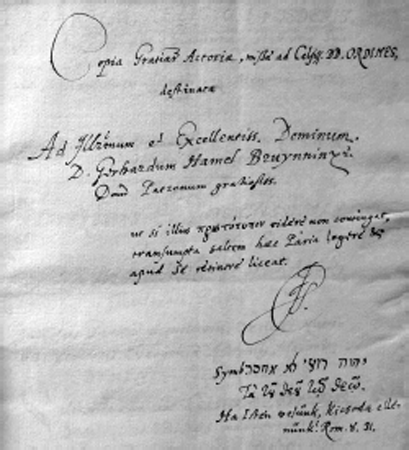 Copia Gratiar Actoriæ, missæ ad Celss. DD. ORDINES,
destinata
Ad Illrēnum et Excellentiss. Dominum.
D. Gerhardum Hamel Bruynninxi.
Patronum gratiosiss.
ut si illius πρωτότυπον videre non contingat,
transumpta saltem hæc Paria legere &
apud se retinere liceat.
Symb. יהוה רועי לא אחסר
Τὰ τοῦ θεοῦ τῷ θεῷ.
Ha Isten velünk, kicsoda elle-
nünk! Rom. 8. 31.